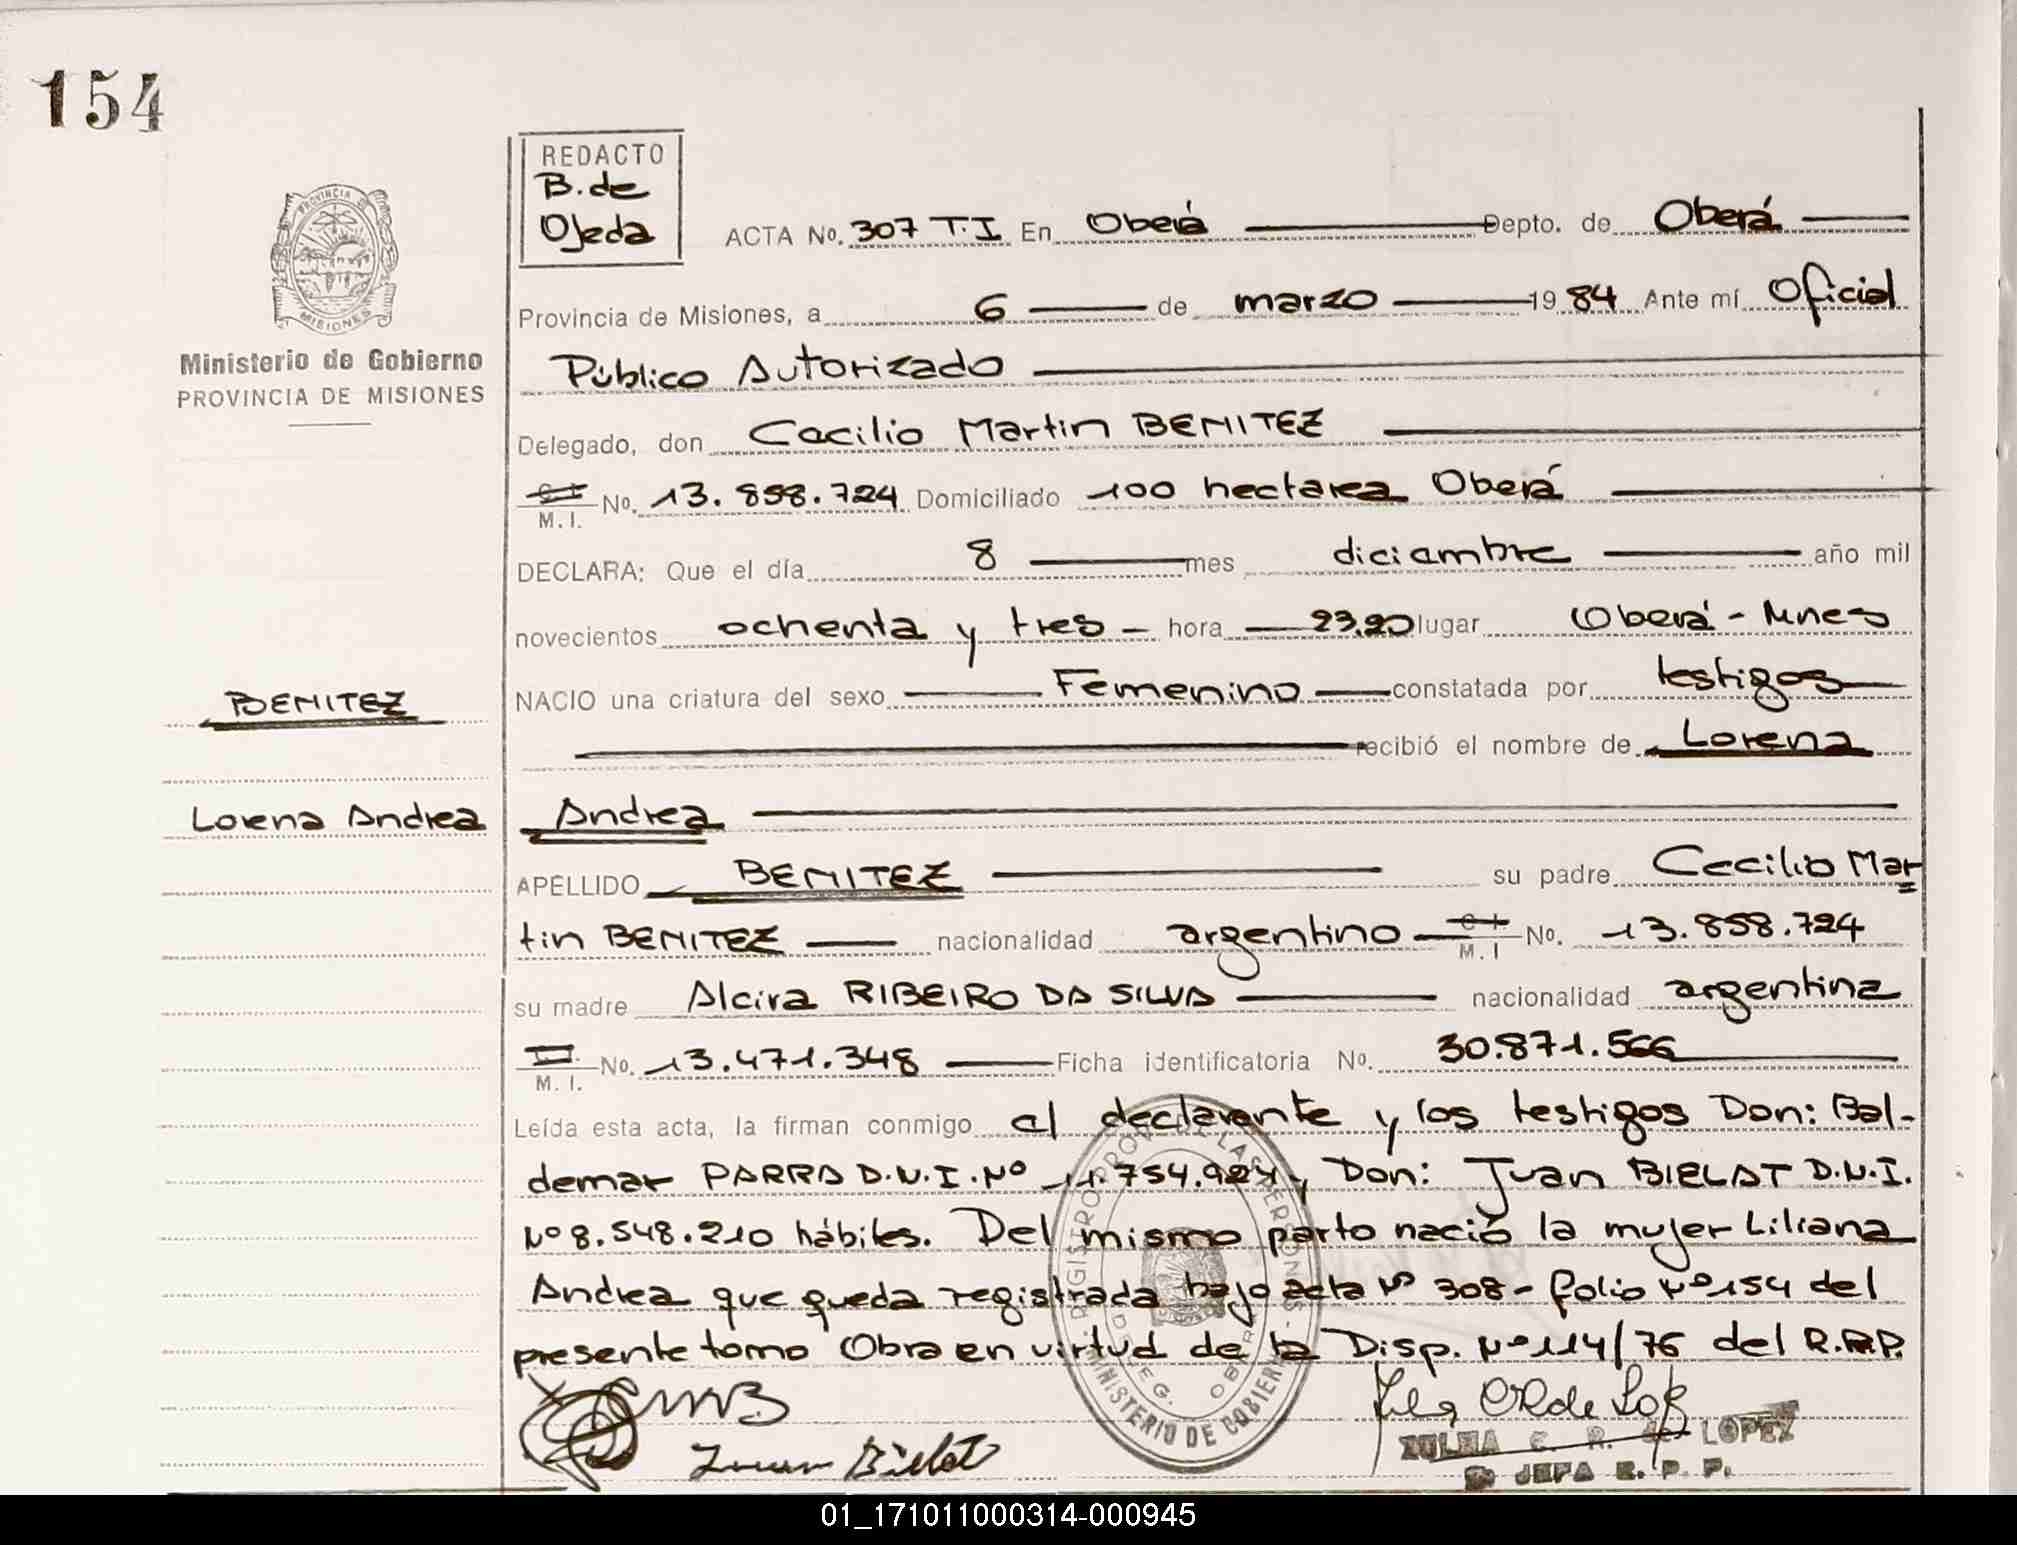 154
REDACTO
B. de
Ojeda
ACTA No. 307 T.I En Oberá Depto. de Oberá
PROVINCIA DE
MISIONES
Ministerio de Gobierno
PROVINCIA DE MISIONES
Provincia de Misiones, a 6 de marzo 1984 Ante mí Oficial
Público Autorizado
Delegado, don Cacilio Martin BENITEZ
M. I. No. 13.858.724 Domiciliado 100 hectarea Oberá
DECLARA: Que el día 8 mes diciambre año mil
novecientos ochenta y tres - hora 23,20 lugar Oberá - Mnes
BENITEZ
NACIO una criatura del sexo Femenino constatada por testigos
recibió el nombre de Lorena
Lorena Andrea
Andrea
APELLIDO BENITEZ su padre Cecilio Mar
tin BENITEZ nacionalidad argentino C I M. I No. 13.858.724
su madre Alcira RIBEIRO DA SILVA nacionalidad argentina
M. I. No. 13.471.348 Ficha identificatoria No. 30.871.566
Leída esta acta, la firman conmigo el declarante y los testigos Don: Bal-
demar PARRA D.N.I. Nº 11.754.924, Don: Juan BIELAT D.N.I.
Nº 8.548.210 hábiles. Del mismo parto nació la mujer Liliana
Andrea que queda registrada bajo acta Nº 308 - folio Nº 154 del
presente tomo Obra en virtud de la Disp. Nº 114/76 del R.P.P.
REGISTRO PROV. DE LAS PERSONAS
DELEG. OBERA
MINISTERIO DE GOBIERNO
Juan Bielat
ZULMA C. R. de LOPEZ
JEFA R. P. P.
01_171011000314-000945